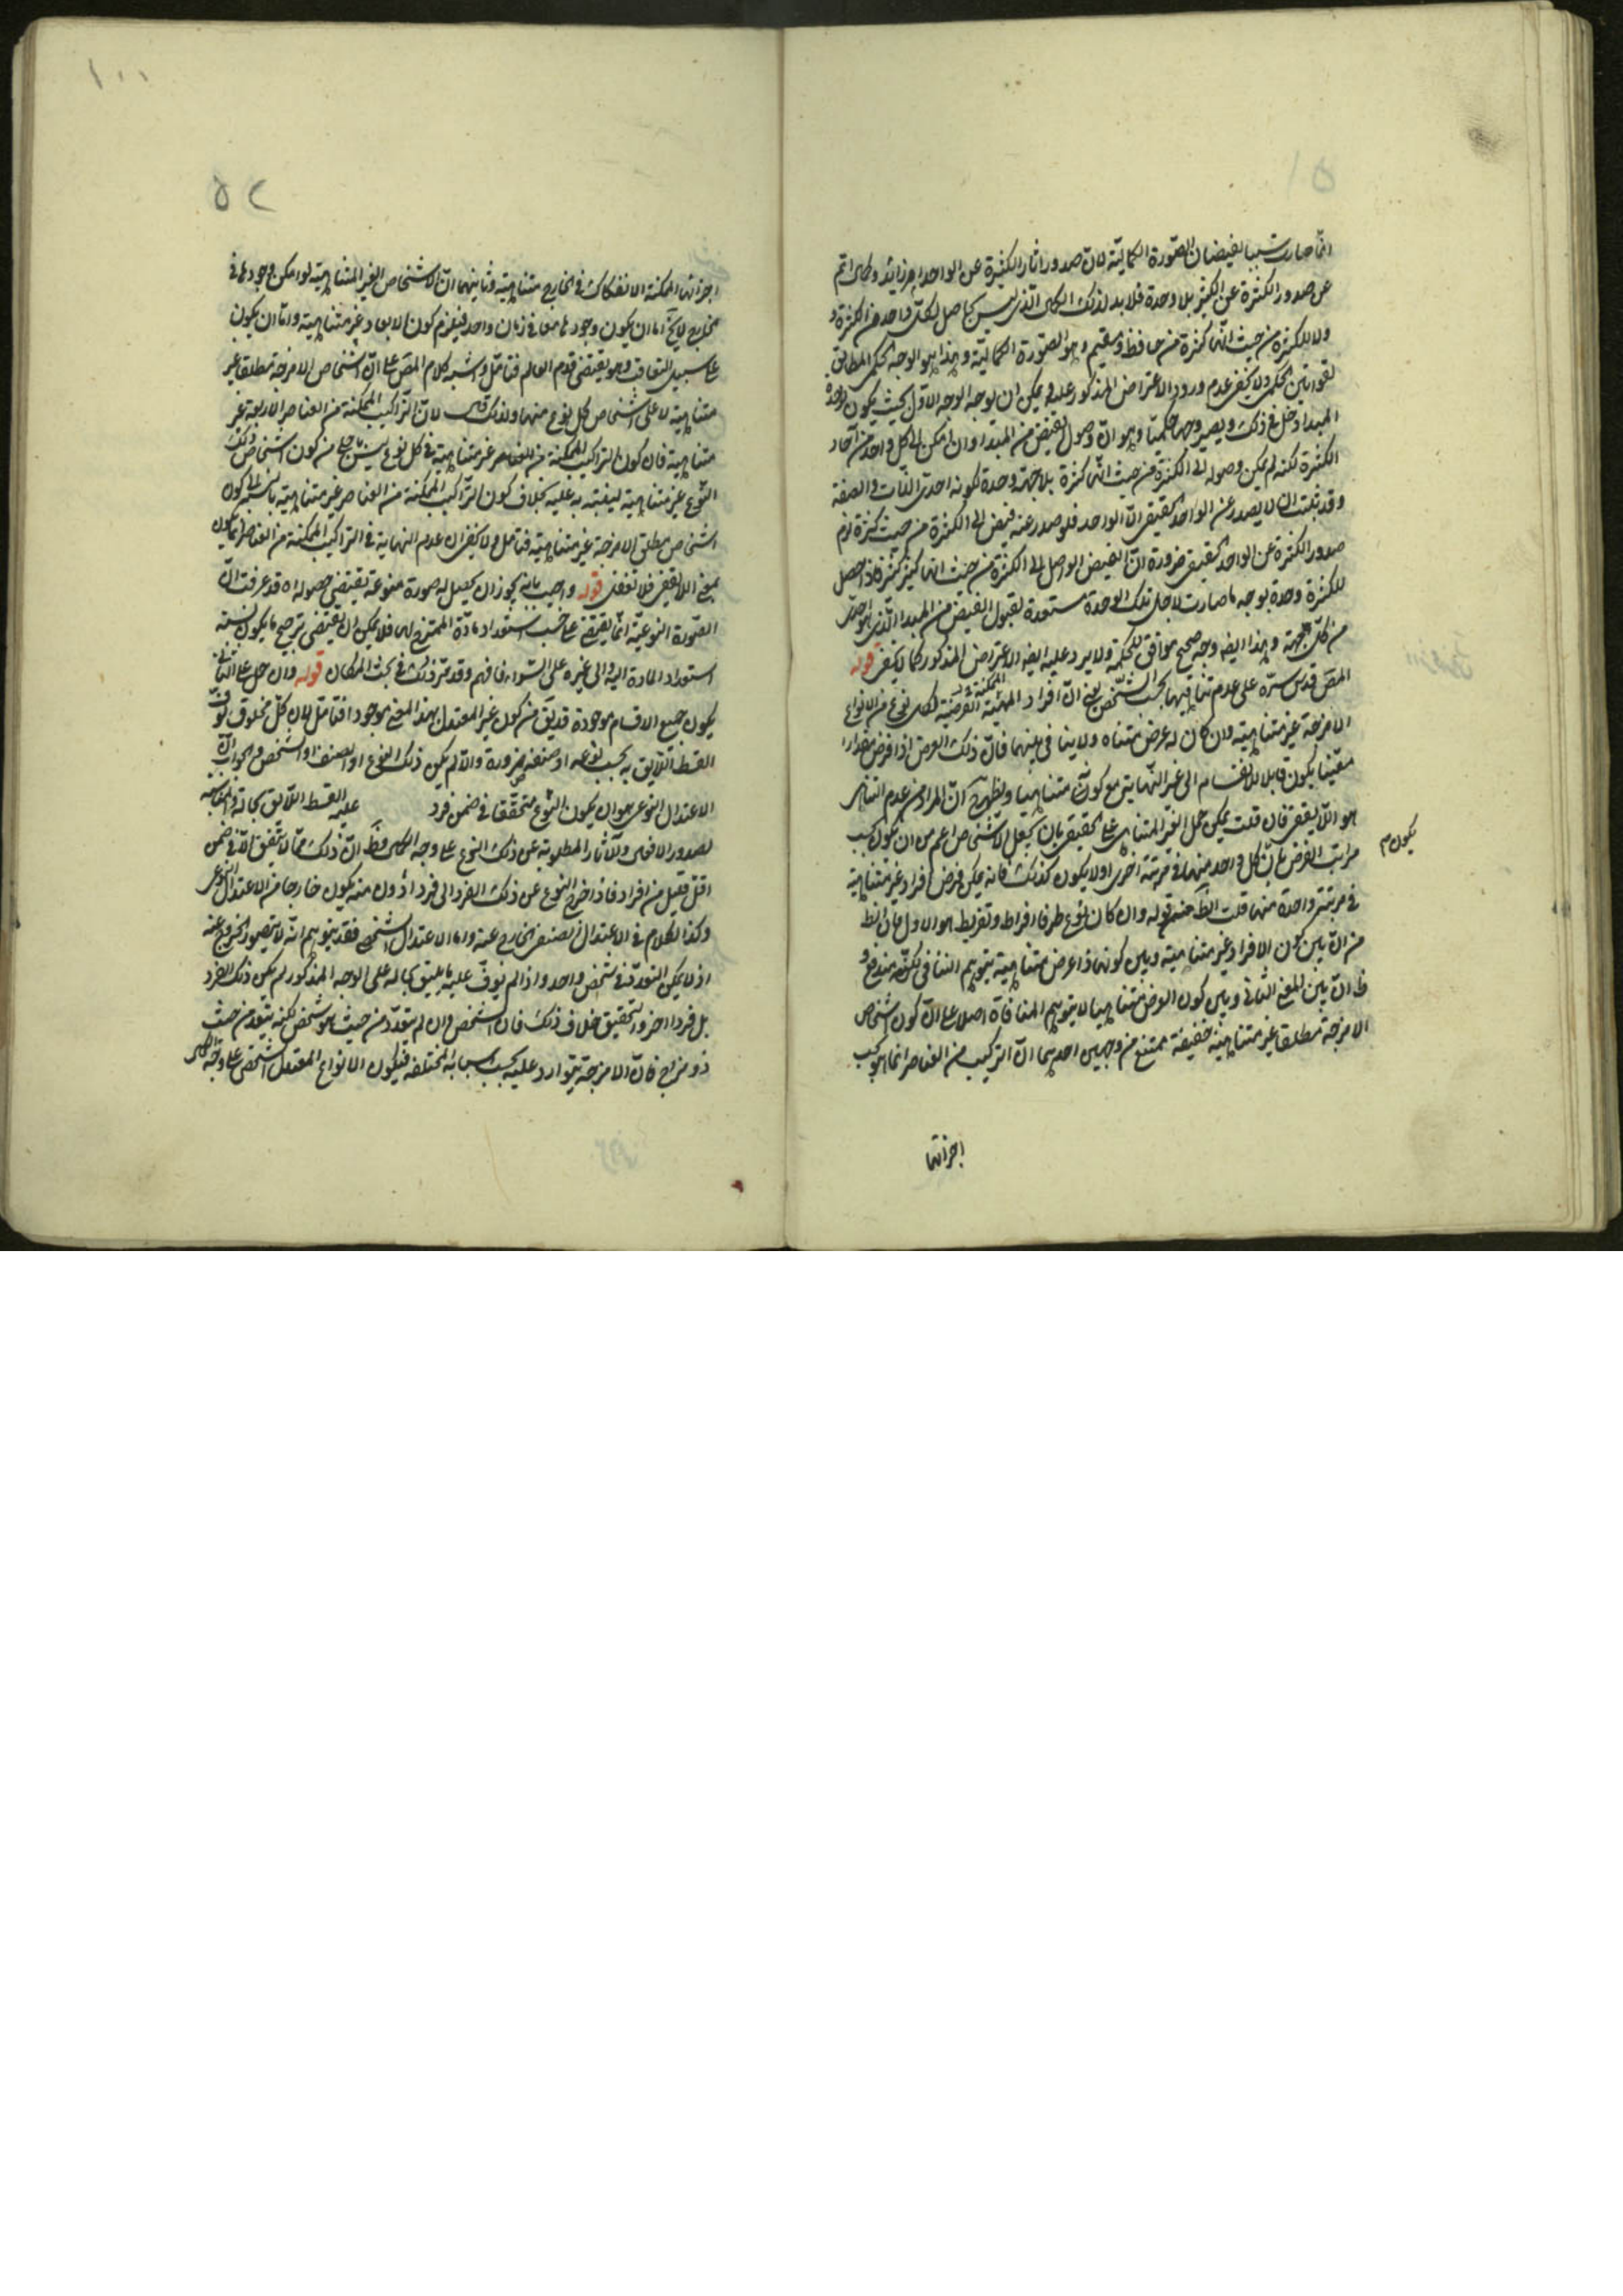 انما صارت سببا لفيضان الصورة الكمالية لان صدور اثار الكثيرة عن الواحد امر زائد وكمال اتم
عن صدور الكثرة عن الكثير بلا وحدة فلا بد لذلك الكمال الذى ليس بحاصل لكل واحد من الكثرة و
ولا للكثرة من حيث انها كثرة من حافظ ومقيم وهو الصورة الكمالية وهذا هو الوجه الحكمى المطابق
لقوانين الحكمة ولا يخفى عدم ورود الاعتراض المذكور عليه ويمكن ان يوجه الوجه الاول بحيث يكون لوحدة
المبدا دخل فى ذلك ويصير وجها حكميا وهو ان وصول الفيض من المبدا وان امكن الى كل واحد من آحاد
الكثرة لكنه لم يمكن وصوله الى الكثرة من حيث انها كثرة بلا جهة وحدة لكونه احدى الذات والصفة
وقد ثبت ان لا يصدر عن الواحد الحقيقى الا الواحد فلو صدر عنه فيض الى الكثرة من حيث كثرة لزم
صدور الكثرة عن الواحد الحقيقى ضرورة ان الفيض الواصل الى الكثرة من حيث انها كثيرة كثير فاذا حصل
للكثرة وحدة بوجه ما صارت لاجل تلك الوحدة مستعدة لقبول الفيض من المبدا الذى هو واحد
من كل جهة وهذا ايضا وجه صحيح موافق للحكمة ولا يرد عليه ايضا الاعتراض المذكور كما لا يخفى قوله
المص قدس سره على عدم تناهيها بحسب الشخص يعنى ان افراد الممكنة الفرضية لكل نوع من الانواع
الامزجة غير متناهية وان كان له عرض متناه ولا ينافى بينهما فان ذلك العرض اذا فرض مقدارا
معينا يكون قابلا للانقسام الى غير النهاية مع كونه متناهيا ويظهر ان المراد من عدم التناهى
هو اللايقفى فان قلت يمكن حمل الغير المتناهى على الحقيقى بان يجعل الاشخاص اعم من ان يكون بحسب
يكون م
مراتب الفرض بان كل واحد منها فى مرتبة اخرى او لا يكون كذلك فانه يمكن فرض افراد غير متناهية
فى مرتبة واحدة منها قلت الظ من قوله وان كان لنوع طرفا افراط وتفريط هو الاول فان الظ
من ان بين كون الافراد غير متناهية وبين كونها ذا عرض متناهية يتوهم التنافى لكنه مندفع و
ظ ان بين المعنى الثانى وبين كون العرض متناهيا لا يتوهم المنافاة اصلا على ان كون اشخاص
الامزجة مطلقا غير متناهية حقيقة ممتنع من وجهين احدهما ان التركيب من العناصر انما هو بحسب
اجزائها
١٠٠
٥٢
اجزائها الممكنة الانفكاك فى الخارج متناهية وثانيهما ان الاشخاص الغير المتناهية لو امكن وجودها فى
الخارج لا يخ اما ان يكون وجودها معا فى زمان واحد فيلزم كون الابعاد غير متناهية واما ان يكون
على سبيل التعاقب وهو يقتضى قدم العالم فتامل واشبه كلام المص على ان اشخاص الامزجة مطلقا غير
متناهية لا على اشخاص كل نوع منها ولذلك قال لان التراكيب الممكنة من العناصر الاربعة غير
متناهية فان كون التراكيب الممكنة من العناصر غير متناهية فى كل نوع ليس باجلى من كون اشخاص ذلك
النوع غير متناهية لينبه به عليه بخلاف كون التراكيب الممكنة من العناصر غير متناهية بالنسبة الى كون
اشخاص مطلق الامزجة غير متناهية فتامل ولا يخفى ان عدم النهاية فى التراكيب الممكنة من العناصر انما يكون
بمعنى اللايقفى فلا تغفل قوله واجيب بانه يجوز ان يحصل له صورة منوعة تقتضى حصوله اه قد عرفت ان
الصورة النوعية انما يقتضى على حسب استعداد مادة الممتزج لها فلا يمكن ان يقتضى ترجيح ما يكون نسبة
استعداد المادة اليه والى غيره على السواء فافهم وقد مر ذلك فى بحث المكان قوله وان حمل على الثانى
يكون جميع الاقسام موجودة قد يق من كون غير المعتدل بهذا المعنى موجودا فتامل لان كل مخلوق يوفى
القسط اللايق به بحسب نوعه او صنفه ضرورة والا لم يكن ذلك النوع او الصنف او الشخص والجواب ان
الاعتدال النوعى هو ان يكون النوع متحققا فى ضمن فرد عليه القسط اللايق بحاله المناسبة
لصدور الافعال والآثار المطلوبة عن ذلك النوع على وجه الكمال وظ ان ذلك مما لا يتفق الا فى ضمن
اقل قليل من افراد فاذا خرج النوع عن ذلك الفرد الى فرد ادون منه يكون خارجا من الاعتدال النوعى
وكذا الكلام فى الاعتدال الصنفى الخارج عنه واما الاعتدال الشخصى فقد يتوهم انه لا يتصور الخروج عنه
اذ لا يمكن التعدد فى شخص واحد واذا لم يوف عليه ما يليق بحاله على الوجه المذكور لم يكن ذلك الفرد
بل فردا اخر والتحقيق خلاف ذلك فان الشخص وان لم يتعدد من حيث هو شخص لكنه يتعدد من حيث
ذو مزاج فان الامزجة يتوارد عليه بحسب اسبابه المختلفة فيكون الانواع المعتدل الشخصى على وجه الكمال